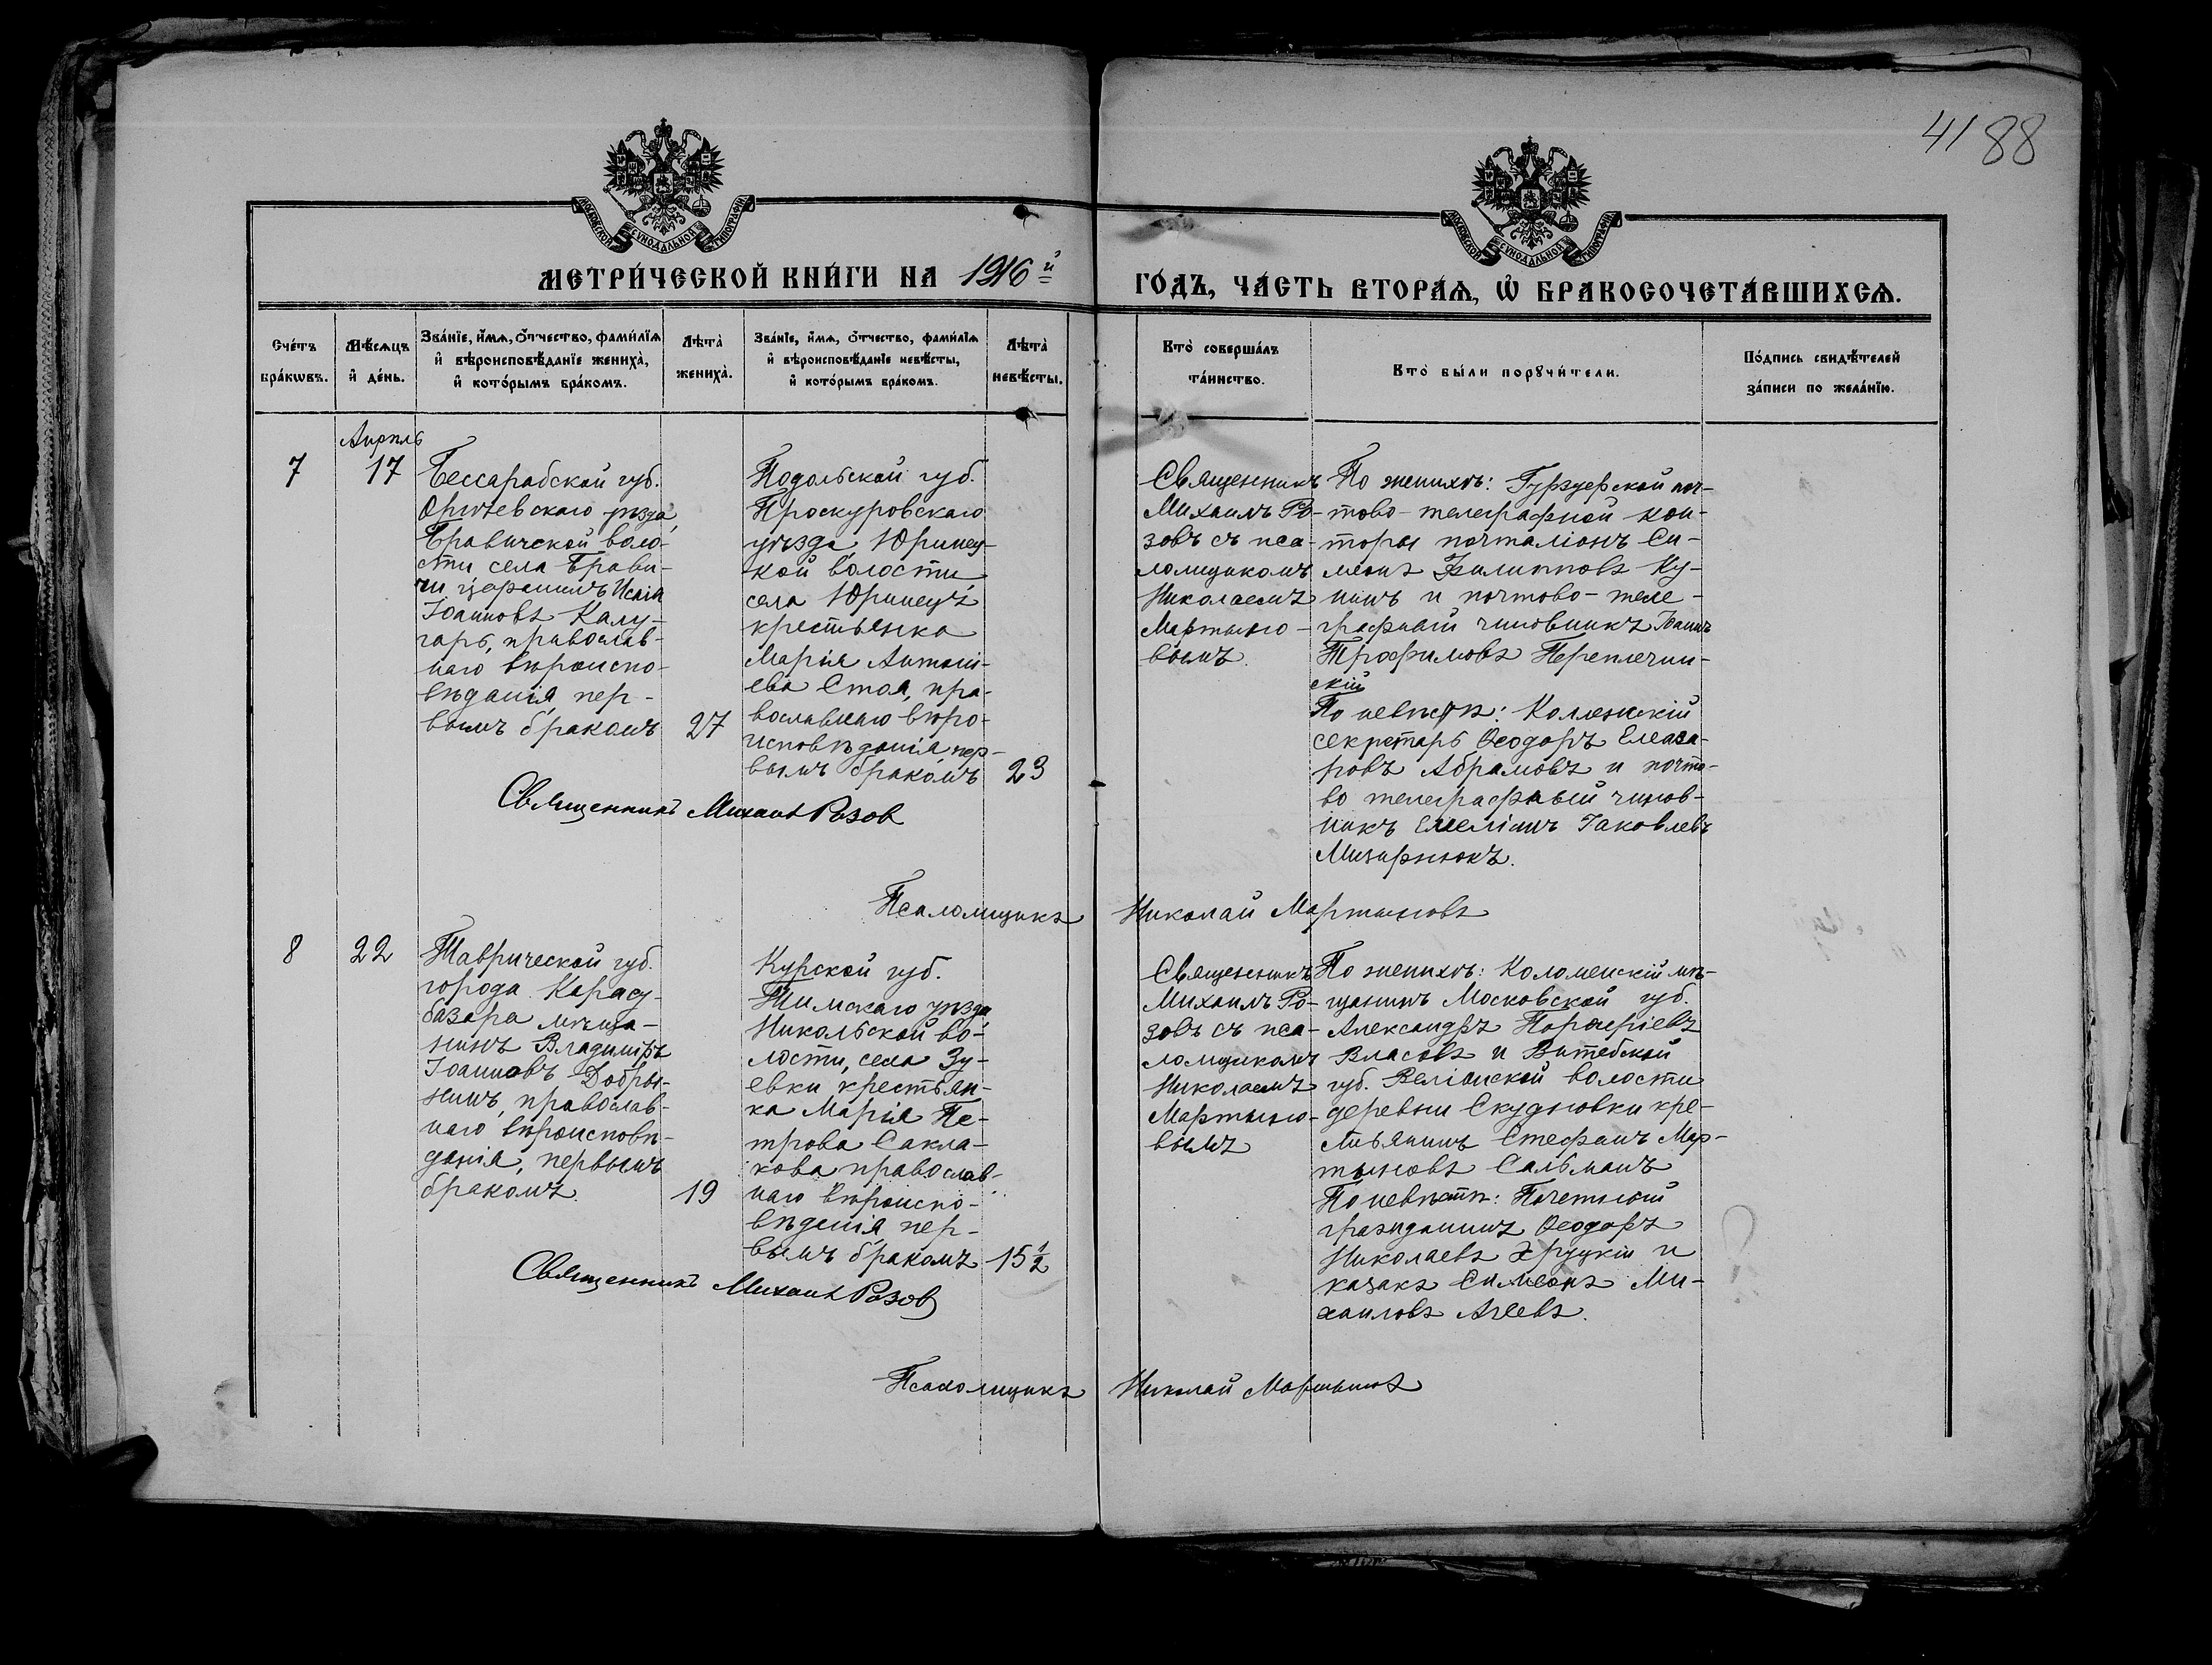 4188
МОСКОВСКОЙ СѴНОДАЛЬНОЙ ТИПОГРАФІИ
МОСКОВСКОЙ СѴНОДАЛЬНОЙ ТИПОГРАФІИ
МЕТРИ́ЧЕСКОЙ КНИ́ГИ НА 1916й
ГО́ДЪ, ЧА́СТЬ ВТОРА́Ѧ, Ѽ БРАКОСОЧЕТА́ВШИХСѦ.
Сче́тъ
бра́кѡвъ.
Мѣ́сѧцъ
и҆ де́нь.
Зва́нїе, и҆́мѧ, ѻ҆́тчество, фами́лїѧ
и҆ вѣроисповѣ́данїе жениха̀,
и҆ кото́рымъ бра́комъ.
Лѣта̀
жениха̀.
Зва́нїе, и҆́мѧ, ѻ҆́тчество, фами́лїѧ
и҆ вѣроисповѣ́данїе невѣ́сты,
и҆ кото́рымъ бра́комъ.
Лѣта̀
невѣ́сты.
Кто̀ соверша́лъ
та́инство.
Кто̀ бы́ли порꙋчи́тели.
По́дпись свидѣ́телей
за́писи по жела́нїю.
7
Апрѣль
17
Бессарабской губ.
Оргѣевскаго уѣзда,
Бравичской воло-
сти села Брави-
чи царанинъ Исаія
Іоанновъ Калу-
гаръ, православ-
наго вѣроиспо-
вѣданія, пер-
вымъ бракомъ
27
Подольской губ.
Проскуровскаго
уѣзда, Юринец-
кой волости
села Юринецъ
крестьянка
Марія Антоні-
ева Стоя, пра-
вославнаго вѣро-
исповѣданія, пер-
вымъ бракомъ
23
Священникъ
Михаилъ Ро-
зовъ съ пса-
ломщикомъ
Николаемъ
Мартыно-
вымъ.
По женихѣ: Гурзуфской поч-
тово-телеграфной кон-
торы почталіонъ Си-
меонъ Филипповъ Ку-
нинъ и почтово-теле-
графный чиновникъ Іоаннъ
Трофимовъ Переплетчин-
скій
По невѣстѣ: Коллежскій
секретарь Ѳеодоръ Елеаза-
ровъ Абрамовъ и почто-
во телеграфный чинов-
никъ Емеліанъ Іаковлевъ
Мизирнюкъ.
Священникъ Михаилъ Розов
Псаломщикъ Николай Мартыновъ
8
22
Таврической губ.
города Карасу-
базара мѣща-
нинъ Владиміръ
Іоанновъ Добры-
нинъ, православ-
наго вѣроисповѣ-
данія, первымъ
бракомъ.
19
Курской губ.
Тимскаго уѣзда
Никольской во-
лости, села Зу-
евки крестьян-
ка Марія Пе-
трова Сакла-
кова православ-
наго вѣроиспо-
вѣданія, пер-
вымъ бракомъ
15 1/2
Священникъ
Михаилъ Ро-
зовъ съ пса-
ломщикомъ
Николаемъ
Мартыно-
вымъ
По женихѣ: Коломенскій мѣ-
щанинъ Московской губ.
Александръ Порфиріевъ
Власовъ и Витебской
губ. Веліонской волости
деревни Скудновки кре-
стьянинъ Стефанъ Мар-
тыновъ Сальманъ
По невѣстѣ: Почетный
гражданинъ Ѳеодоръ
Николаевъ Хруцкій и
казакъ Симеонъ Ми-
хаиловъ Агѣевъ.
Священникъ Михаилъ Розов
Псаломщикъ Николай Мартыновъ